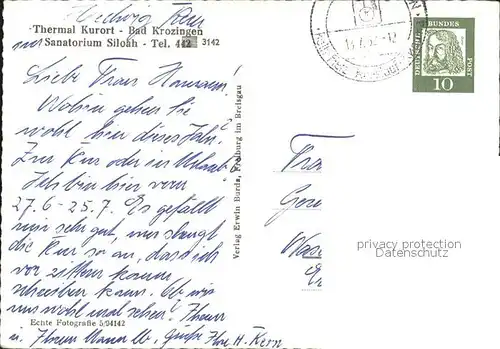 Hedwig Kern
Thermal Kurort - Bad Krozingen
Sanatorium Siloah - Tel. 442 3142
Liebe Frau
Wohin gehen Sie
wohl hier dieses Jahr?
Zur Kur oder in Urlaub
Ich bin hier vom
27.6 - 25.7. Es gefällt
mir sehr gut, nur
die Kur so an, dass ich
vor zittern kaum
schreiben kann. Ob wir
uns wohl mal sehen? Ihnen
u. Ihrem Mann Grüße Ihre H. Kern
Echte Fotografie 5/94142
Verlag Erwin Burda, Freiburg im Breisgau
DEUTSCHE BUNDES
POST
10
privacy protection
Datenschutz